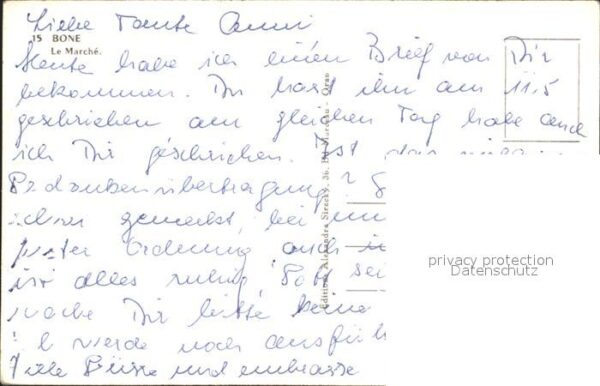 Liebe Tante Anni
15 BONE
Le Marché.
Heute habe ich einen Brief von Dir
bekommen. Du hast ihn am 11.5
geschrieben am gleichen Tag habe auch
ich Dir geschrieben. Ist das
Gedankenübertragung?
gemerkt, bei
Ordnung auch
ist alles ruhig, Gott sei
mache Dir bitte keine
Ich werde noch ausfüh
Viele Grüsse und embrasse
Editions Alexandre Sirecky, - Oran
privacy protection
Datenschutz